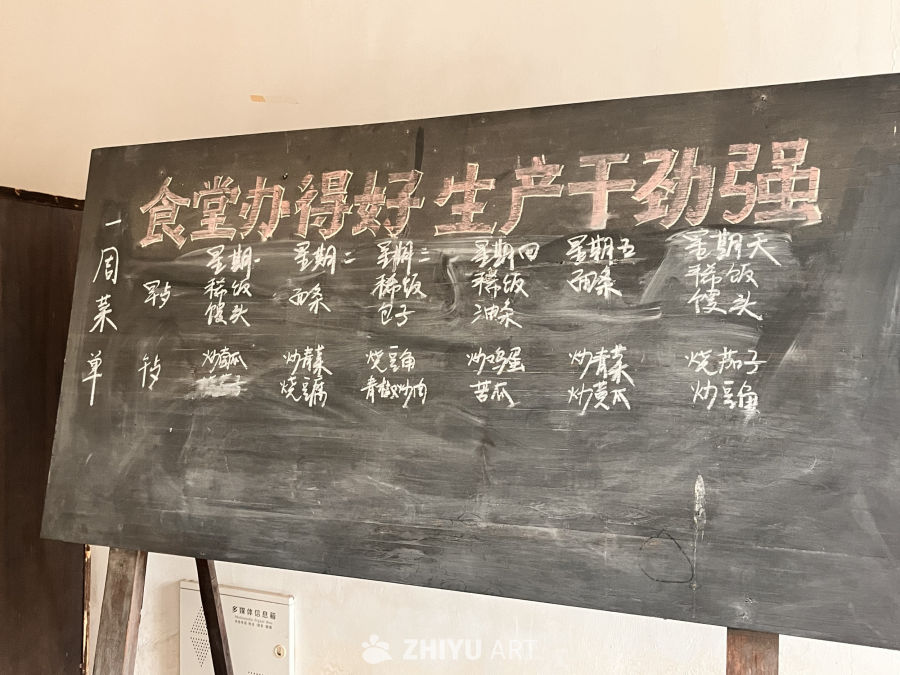 食堂办得好 生产干劲强
一周菜单
星期一 星期二 星期三 星期四 星期五 星期天
早 稀饭 面条 稀饭 稀饭 面条 稀饭
馒头 包子 油条 馒头
炒黄瓜 炒青菜 烧豆角 炒鸡蛋 炒青菜 烧茄子
烧豆腐 青椒炒肉 苦瓜 炒黄瓜 炒豆角
多媒体信息箱
ZHIYU ART